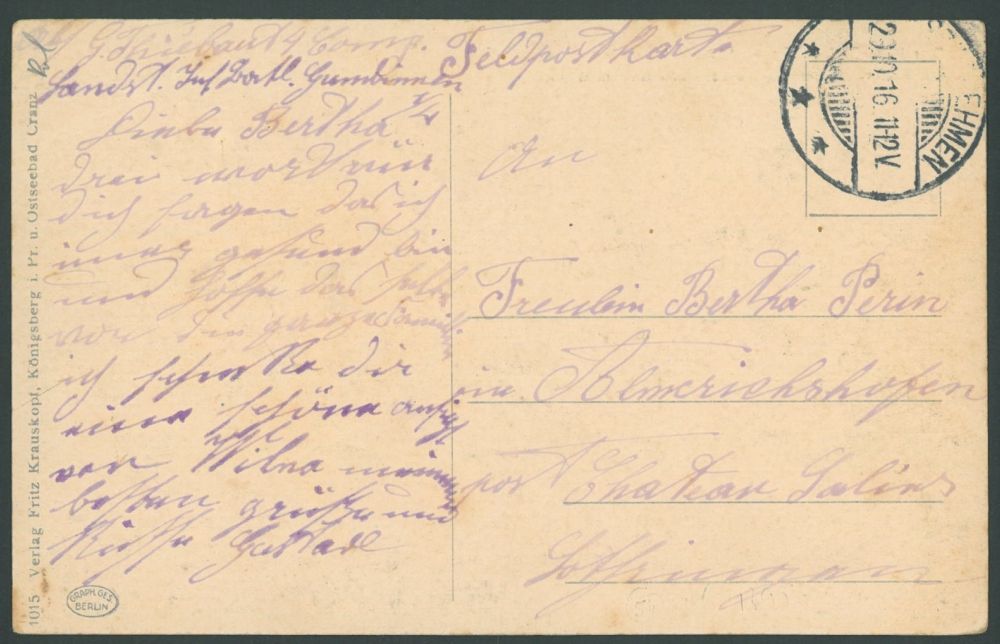 Feldpostkarte
G. Thiebaut 4 Comp.
Landst. Inf. Batl. Gumbinnen
1/4
Liebe Bertha
drei wort nur
dich sagen das ich
imer gesund bin
und hoffe das selbe
von die ganze Famil.
ich schecke dir
eine schöne ansicht
von Wilna meine
besten grüße und
Küsse
An
Freulein Bertha Perin
in Almerichshofen
post Chateau Salins
Lothringen
29.10.16.11-12V.
EHMEN
1015 Verlag Fritz Krauskopf, Königsberg i. Pr. u. Ostseebad Cranz
GRAPH. GES.
BERLIN